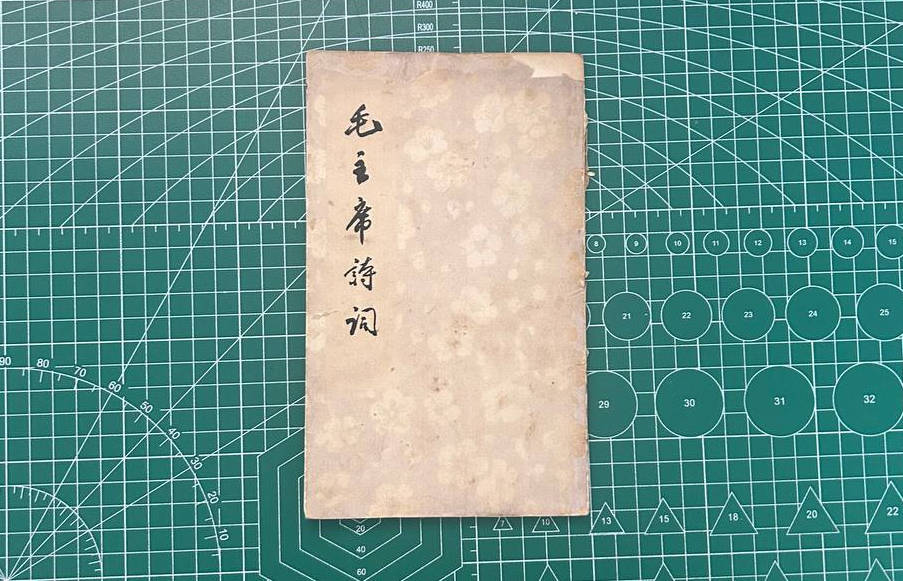 毛主席詩词
R400
R300
R250
8 9 10 11 12 13 14 15
21 22 23 24 25
90 80 70 60 50 40 30 20 10
29 30 31 32
7 10 13 15 18 20 22
20
40
60